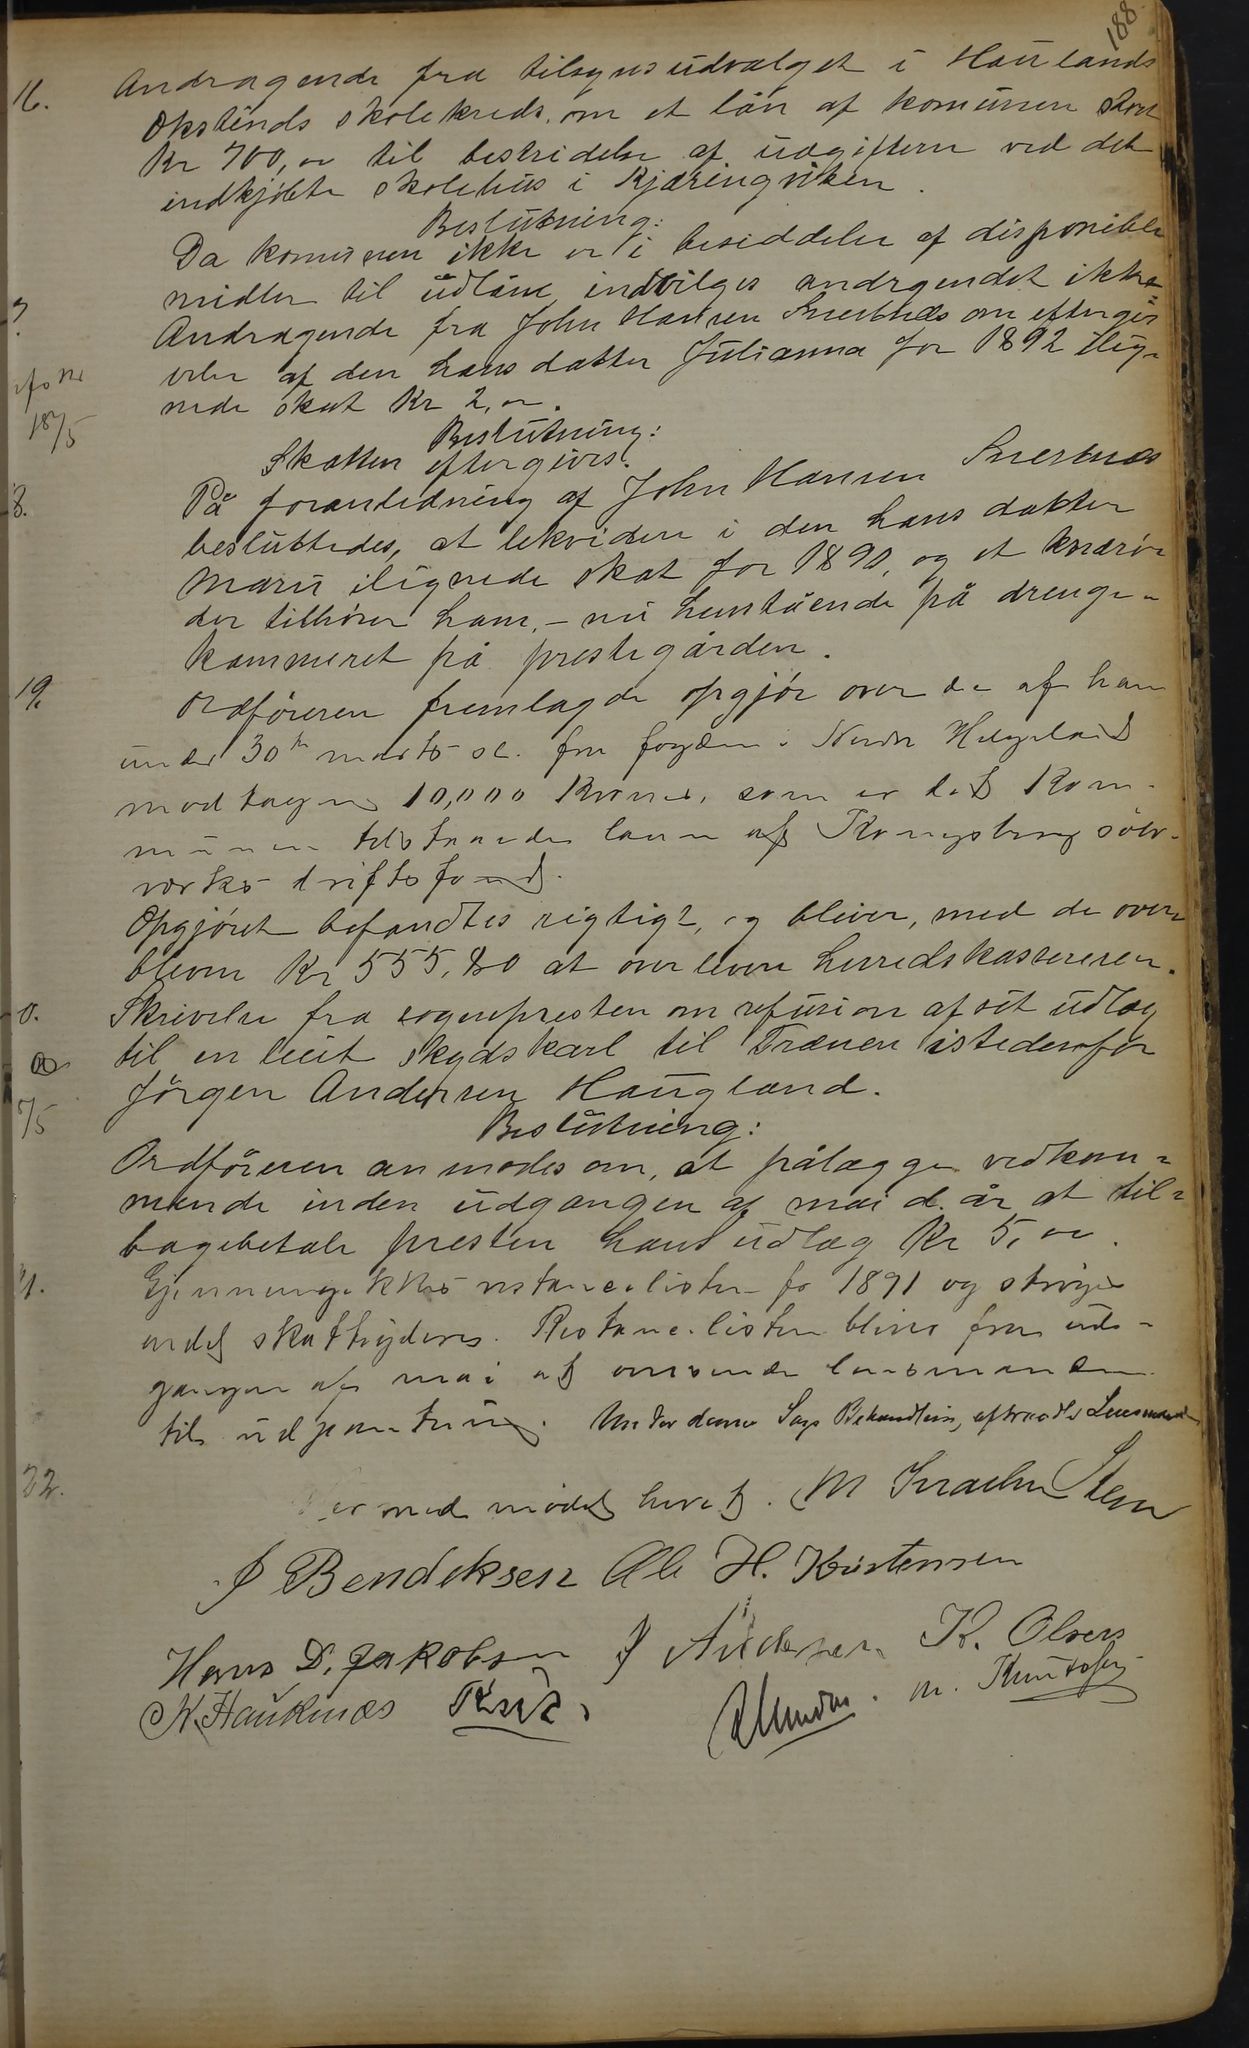 188
16. Andragende fra tilsynsudvalget i Haulands
Okstinds skolekreds. om et lån af komunen stort
Kr 700,00 til bestridelse af udgifterne ved det
indkjøbte skolehus i Kjæringviken.
Beslutning:
Da komunen ikke er i besiddelse af disponible
midler til udlåne, indvilges andragendet ikke
Andragende fra John Hansen om eftergi-
velse af den hans datter Julianna for 1892 ilig-
nede skat Kr 2,00.
18/5
Beslutning:
Skatten eftergives.
8. På foranledning af John Hansen
besluttedes, at lekvidere i den hans datter
Marie ilignede skat for 1890, og et
der tilhører ham, - nu henstående på drenge-
kammeret på prestegården.
19. Ordføreren fremlagde opgjør over de af ham
under 30te marts sl. fra fogden i Nordre Helgeland
modtagne 10,000 Kroner, som er det Kom-
munen tilstaaede laan af Kongsberg sølv-
værks driftsfond.
Opgjøret befandtes rigtigt, og bliver, med de over-
blevne Kr 555,80 at overlevere herredskassereren.
0. Skrivelse fra sognepresten om refusion af sit udlæg
til en leiet skydskarl til Trænen istedenfor
Jørgen Andersen Haugland.
7/5
Beslutning:
Ordføreren anmodes om, at pålægge vedkom-
mende inden udgangen af mai d. år at til-
bagebetale presten hans udlæg Kr 5,00.
1. Gjennemgikkes restancelisten for 1891 og
endel skatteydere. Restancelisten bliver fra ud-
gangen af mai at oversende lensmanden
til udpantning. Under denne Sags Behandling, aftraadte Lensmanden
22. Dermed mødet hævet. M Israelsen Stern
J Bendiksen Ole H. Kristensen
Hans D. Jakobsen J Andersen K. Olsen
N. Hauknæs M. Knutsen